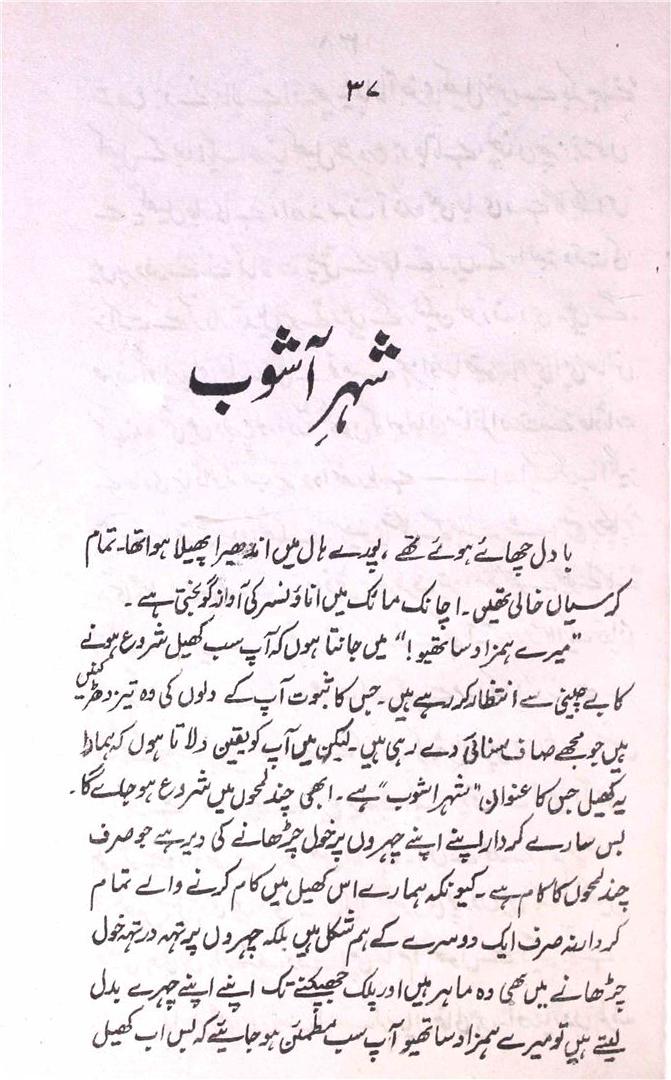 ۳۷
شہرِ آشوب
بادل چھائے ہوئے تھے ، پورے ہال میں اندھیرا پھیلا ہوا تھا۔ تمام
کرسیاں خالی تھیں۔ اچانک مائک میں اناؤنسر کی آواز گونجتی ہے ۔
"میرے ہمزاد ساتھیو !" میں جانتا ہوں کہ آپ سب کھیل شروع ہونے
کا بے چینی سے انتظار کر رہے ہیں ۔ جس کا ثبوت آپ کے دلوں کی وہ تیز دھڑکنیں
ہیں جو مجھے صاف سنائی دے رہی ہیں ۔ لیکن میں آپ کو یقین دلاتا ہوں کہ ہمارا
یہ کھیل جس کا عنوان "شہر آشوب" ہے ۔ ابھی چند لمحوں میں شروع ہو جلے گا ۔
بس سارے کردار اپنے اپنے چہروں پر خول چڑھانے کی دیر ہے جو صرف
چند لمحوں کا کام ہے ۔ کیونکہ ہمارے اس کھیل میں کام کرنے والے تمام
کردار نہ صرف ایک دوسرے کے ہم شکل ہیں بلکہ چہروں پر تہہ در تہہ خول
چڑھانے میں بھی وہ ماہر ہیں اور پلک جھپکتے تک اپنے اپنے چہرے بدل
لیتے ہیں تو میرے ہمزاد ساتھیو آپ سب مطمئن ہو جایئے کہ بس اب کھیل